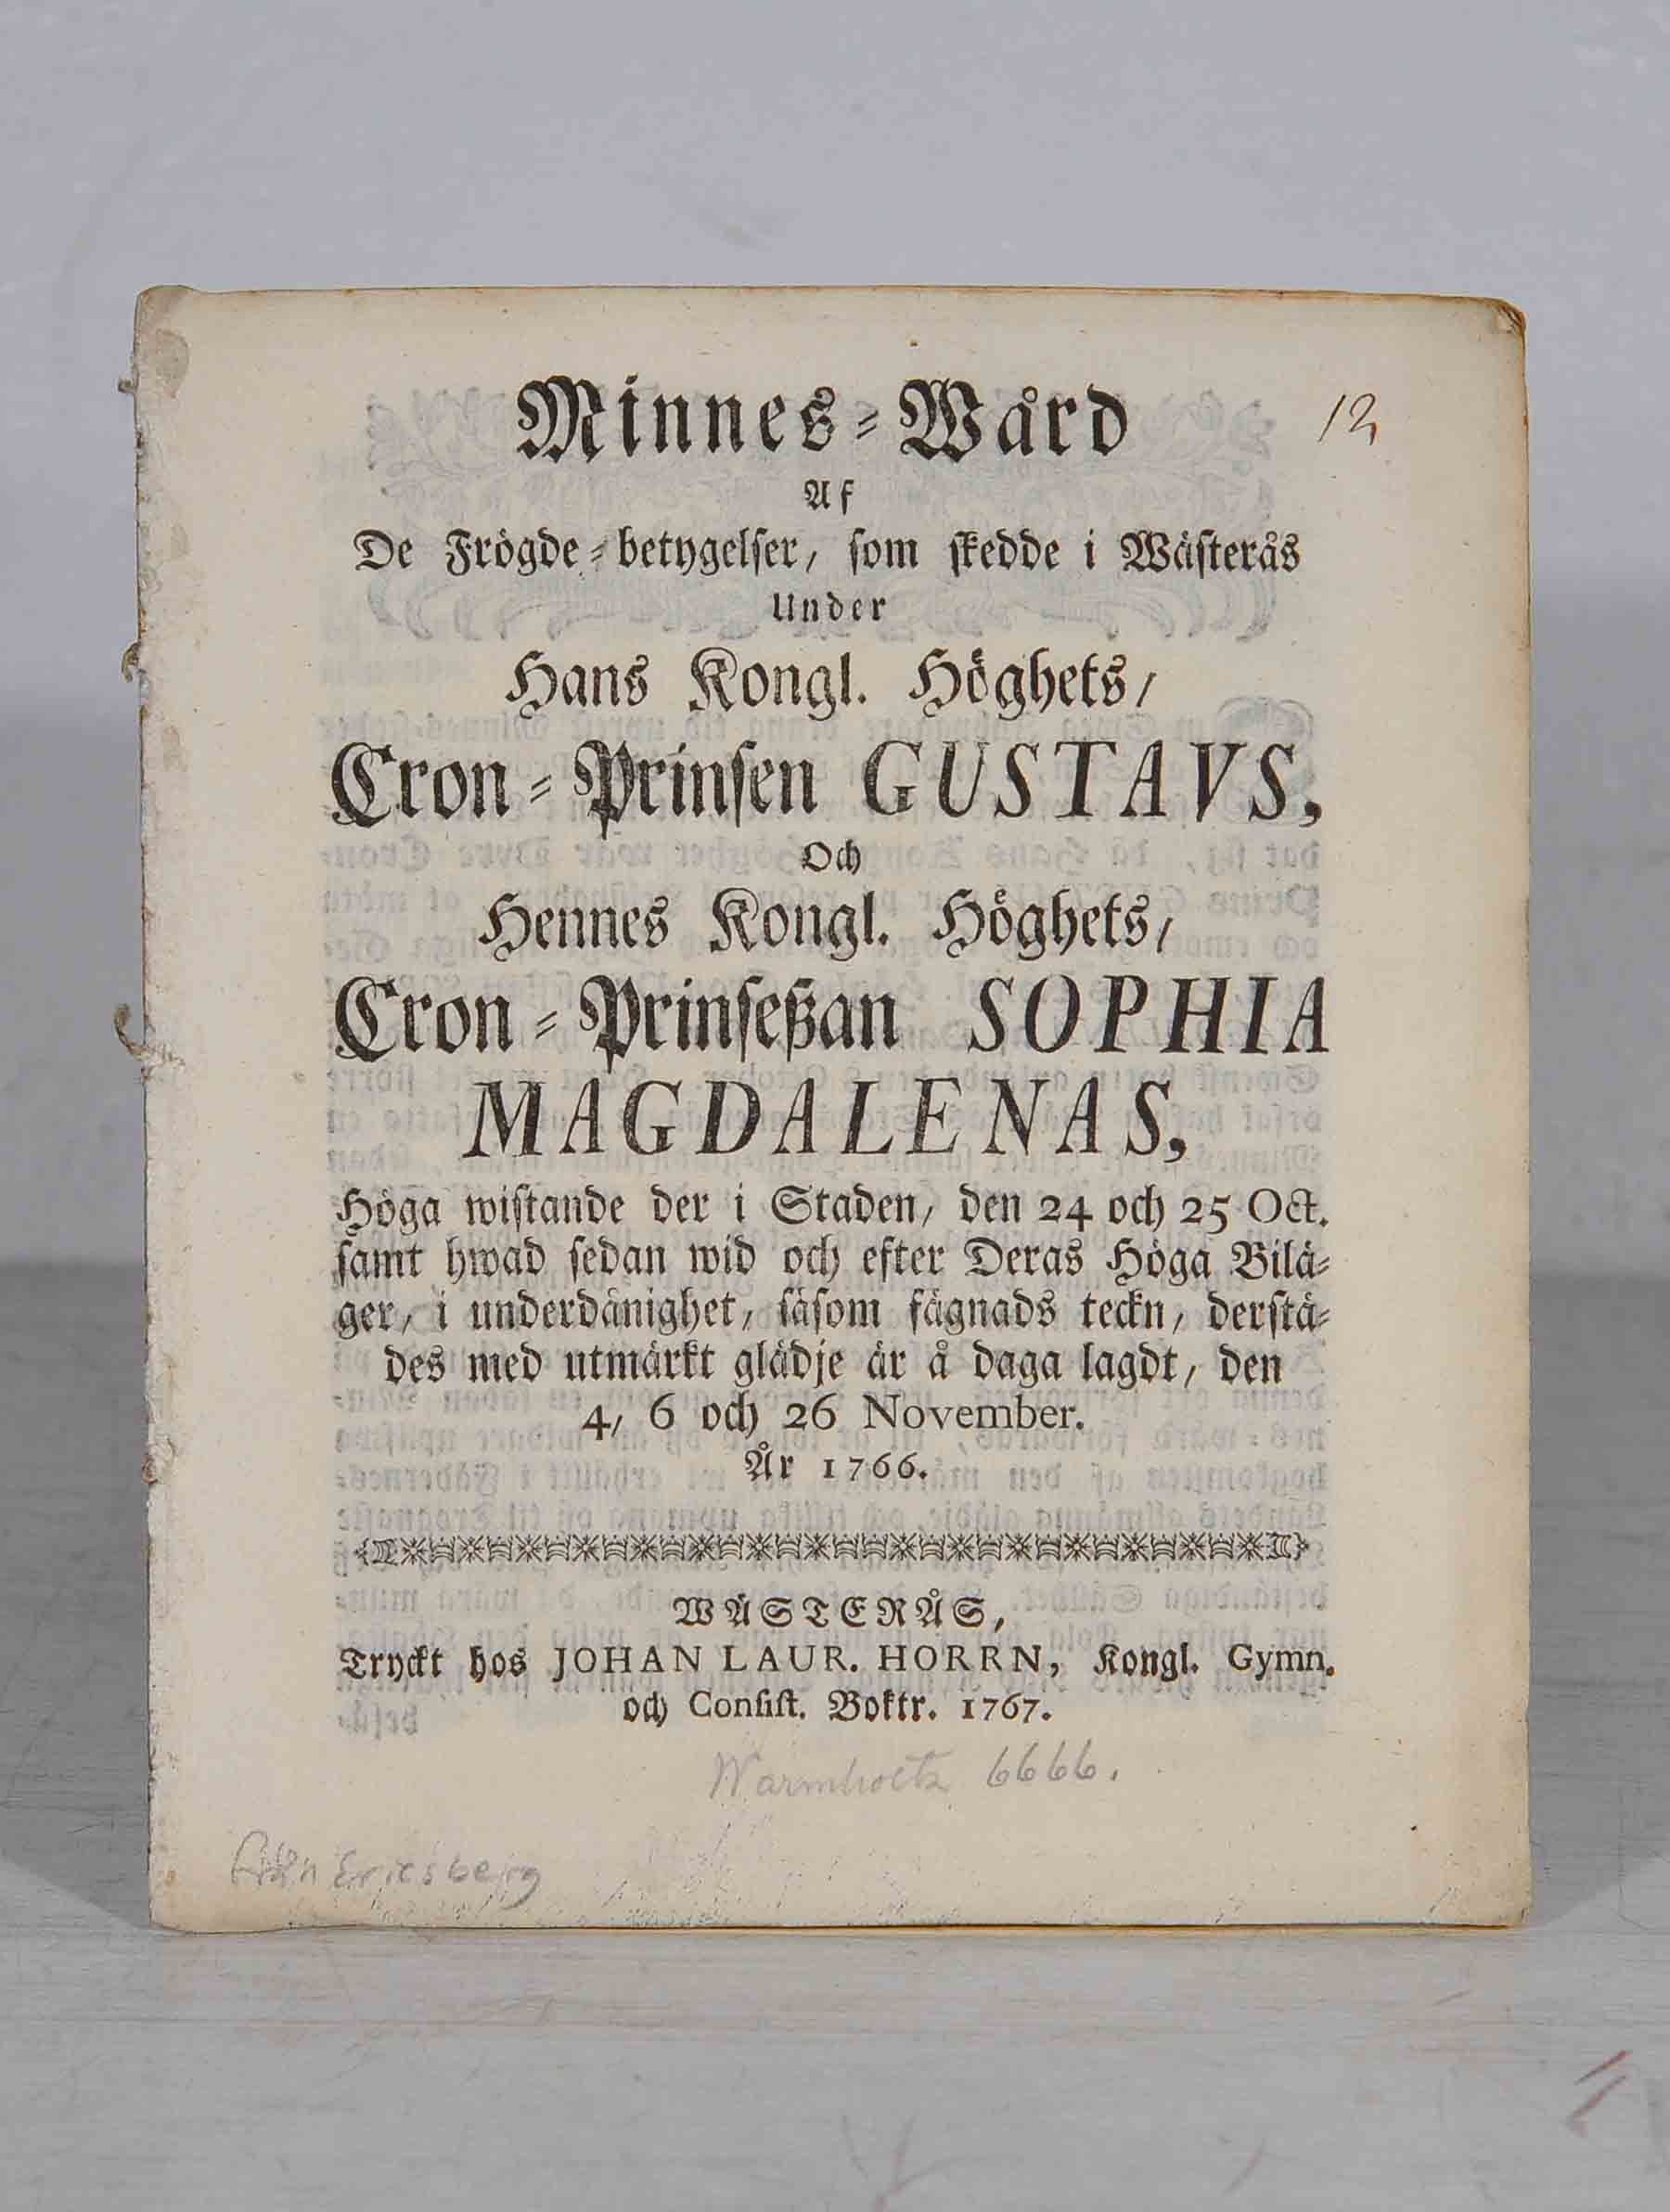 Minnes-Wård
12
Af
De Frögde-betygelser, som skedde i Wästerås
Under
Hans Kongl. Höghets,
Cron-Prinsen GUSTAVS,
Och
Hennes Kongl. Höghets,
Cron-Prinseßan SOPHIA
MAGDALENAS,
Höga wistande der i Staden, den 24 och 25 Oct.
samt hwad sedan wid och efter Deras Höga Bilä-
ger, i underdånighet, såsom fägnads teckn, derstä-
des med utmärkt glädje är å daga lagdt, den
4, 6 och 26 November.
År 1766.
WÄSTERÅS,
Tryckt hos JOHAN LAUR. HORRN, Kongl. Gymn.
och Consist. Boktr. 1767.
Warmholtz 6666.
från Ericsberg